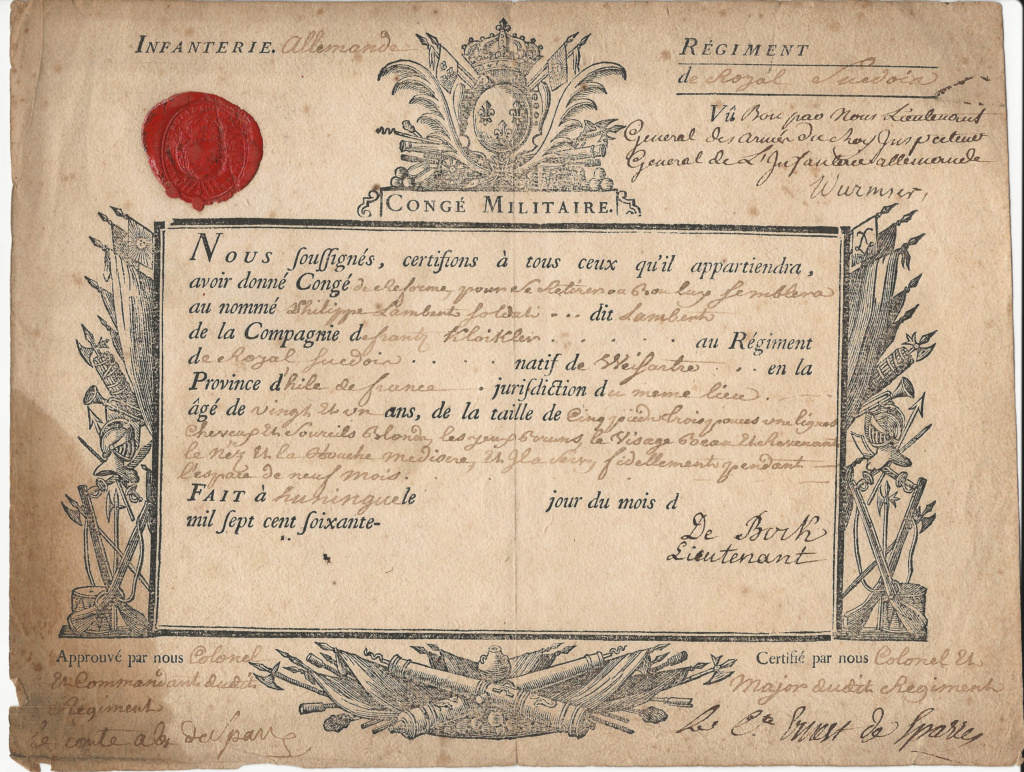 INFANTERIE. Allemande
RÉGIMENT
de Royal Suedois
Vû Bon par Nous Lieutenant
General des armés du Roy Inspecteur
General de L'Infanterie allemande
Wurmser,
CONGÉ MILITAIRE.
NOUS ſouſſignés, certifions à tous ceux qu'il appartiendra,
avoir donné Congé de Reforme, pour Se Retirer ou Bon luy Semblera
au nommé Philippe Lambert soldat ... dit Lambert
de la Compagnie de frantz Kloikler . . . . . . au Régiment
de Royal Suedois . . . . . natif de . . . en la
Province d'hile de france . jurisdiction du meme lieu . . . .
âgé de vingt Et un ans, de la taille de Cinq pieds trois pouces une lignes
Cheveux Et Sourcils Blonds, les yeux Bruns, le Visage Beau Et Revenant
le Néz Et la Bouche mediocre, Et Il a Servy fidellement pendant
l'espace de neuf mois.
FAIT à huningue le jour du mois d
mil ſept cent ſoixante-
De Bock
Lieutenant
Approuvé par nous Colonel
Et Commandant dudit
Regiment
Le comte de Spar
Certifié par nous Colonel Et
Major dudit Regiment
Le Cte Ernest de Sparre